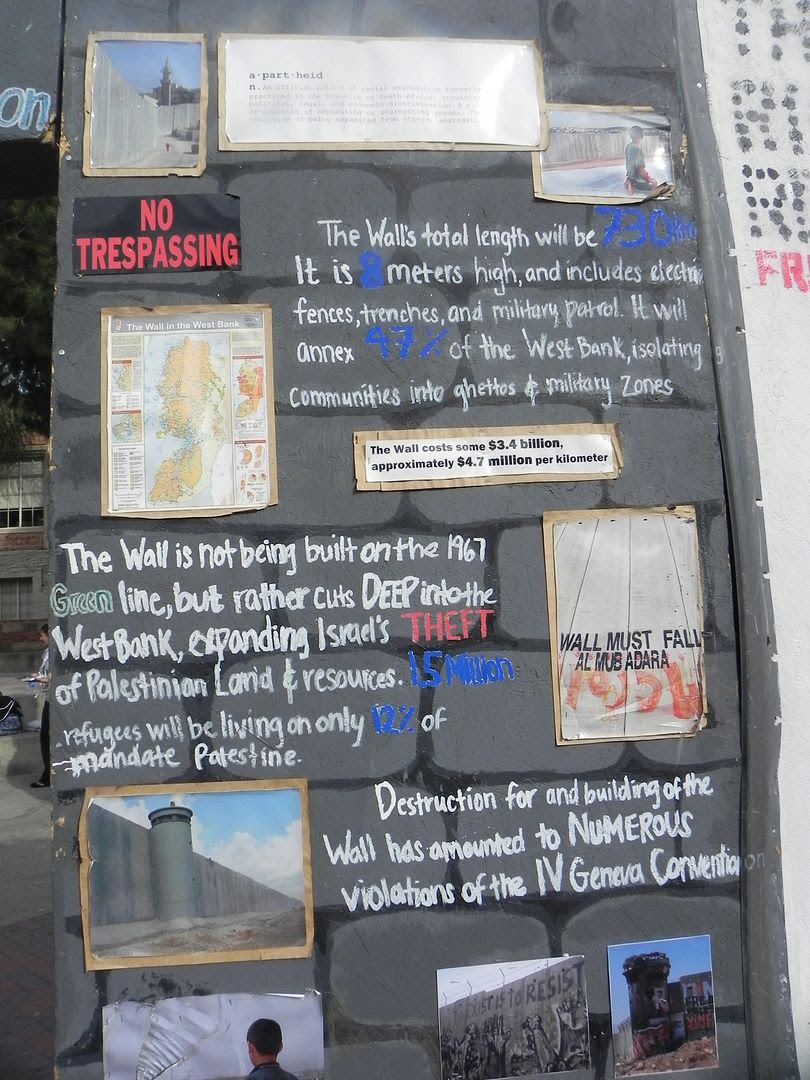 on
a·part·heid
n. An official policy of racial segregation formerly
practiced in the Republic of South Africa, involving
political, legal, and economic discrimination. A
or practice of separating or segregating groups. The
condition of being separated from others; segregati
NO
TRESPASSING
FR
The Wall's total length will be 730
It is 8 meters high, and includes electri
fences, trenches, and military patrol. It will
annex 47% of the West Bank, isolating
communities into ghettos & military zones
The Wall in the West Bank
The Wall costs some $3.4 billion,
approximately $4.7 million per kilometer
The Wall is not being built on the 1967
Green line, but rather cuts DEEP into the
West Bank, expanding Israel's THEFT
of Palestinian Land & resources. 1.5 Million
refugees will be living on only 12% of
mandate Palestine.
WALL MUST FALL
AL MUBADARA
Destruction for and building of the
Wall has amounted to NUMEROUS
violations of the IV Geneva Convention
EXIST IS TO RESIST
FREE